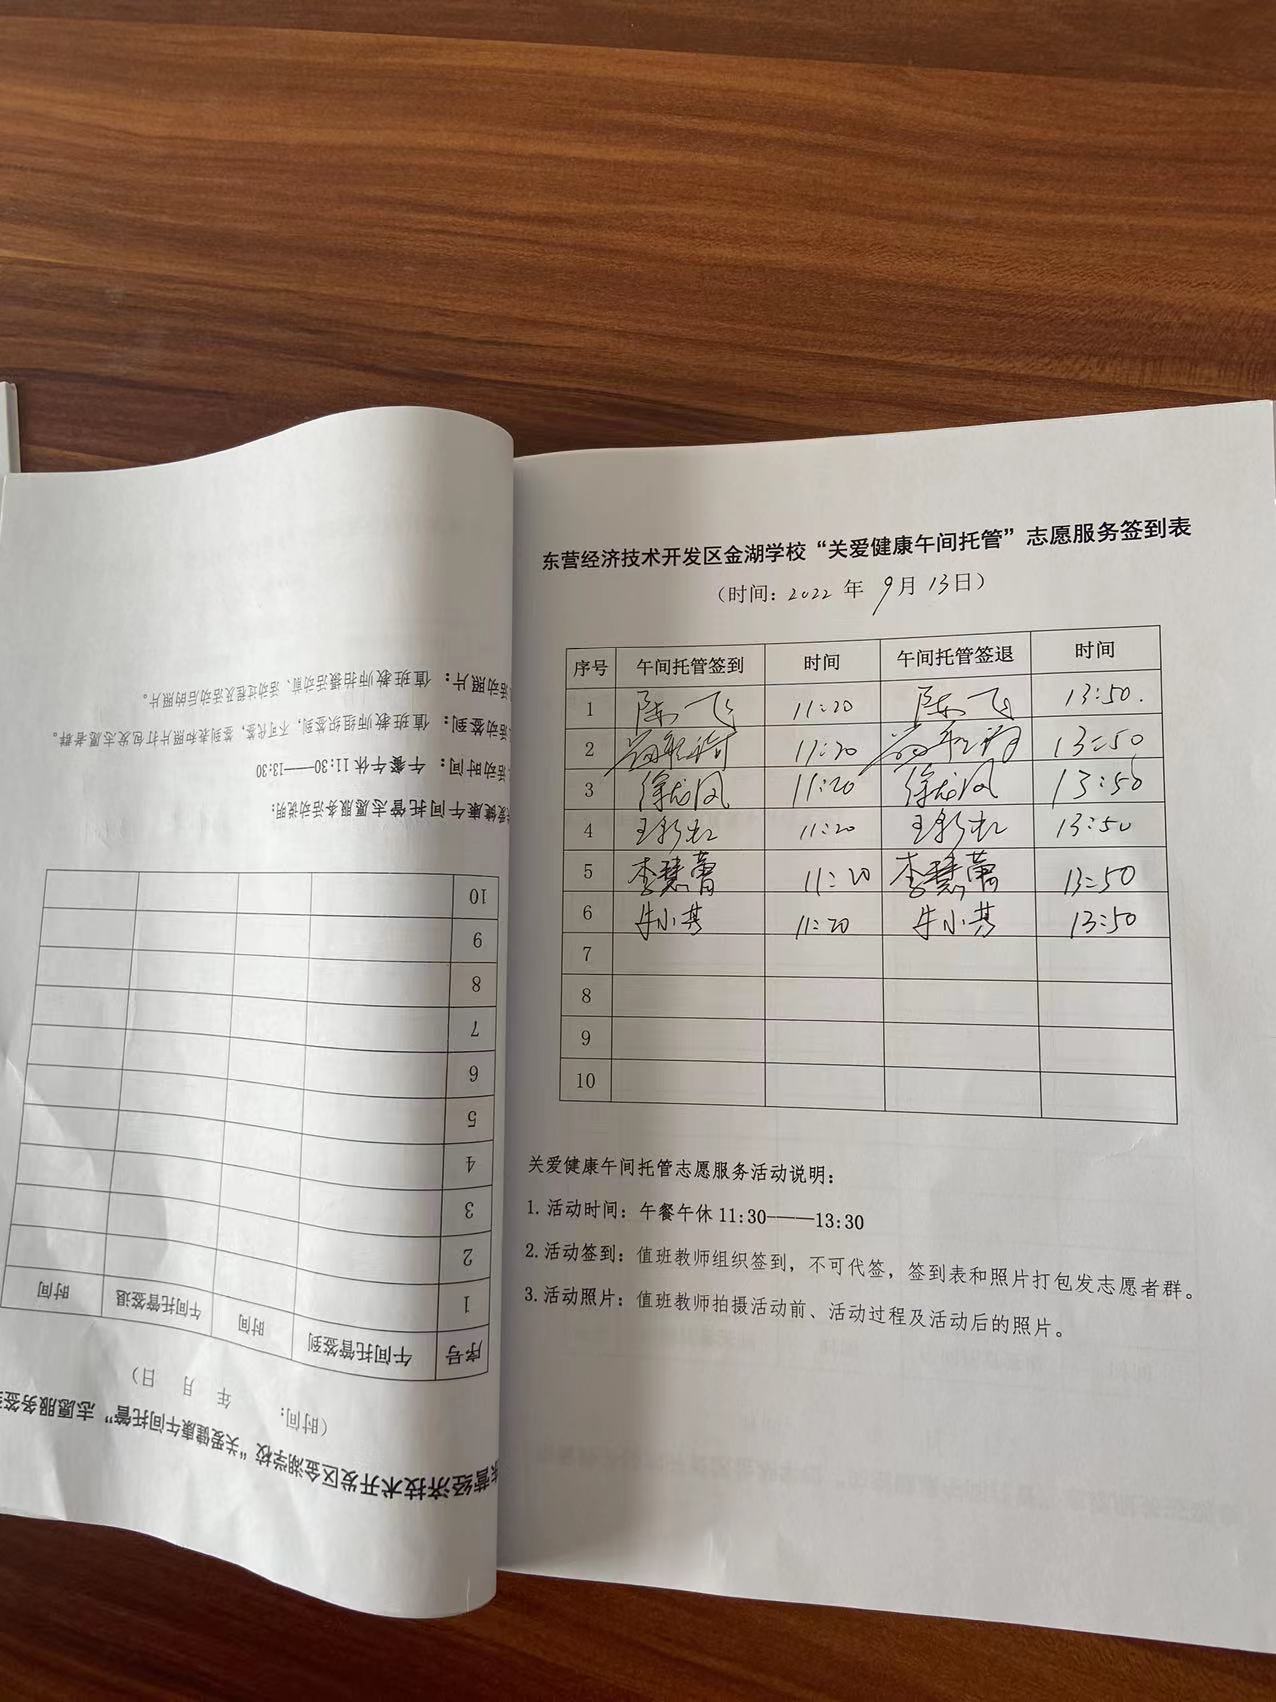 东营经济技术开发区金湖学校“关爱健康午间托管”志愿服务签到表
（时间：2022 年 9月 13日）
序号 午间托管签到 时间 午间托管签退 时间
1 陈飞 11:20 陈飞 13:50.
2 11:20 13:50
3 徐龙凤 11:20 徐龙凤 13:50
4 王彩虹 11:20 王彩虹 13:50
5 李慧蕾 11:20 李慧蕾 13:50
6 牛小芳 11:20 牛小芳 13:50
7
8
9
10
关爱健康午间托管志愿服务活动说明：
1. 活动时间：午餐午休 11:30——13:30
2. 活动签到：值班教师组织签到，不可代签，签到表和照片打包发志愿者群。
3. 活动照片：值班教师拍摄活动前、活动过程及活动后的照片。
东营经济技术开发区金湖学校“关爱健康午间托管”志愿服务签到
（时间： 年 月 日）
序号 午间托管签到 时间 午间托管签退 时间
1
2
3
4
5
6
7
8
9
10
爱健康午间托管志愿服务活动说明：
活动时间：午餐午休 11:30——13:30
活动签到：值班教师组织签到，不可代签，签到表和照片打包发志愿者群。
活动照片：值班教师拍摄活动前、活动过程及活动后的照片。